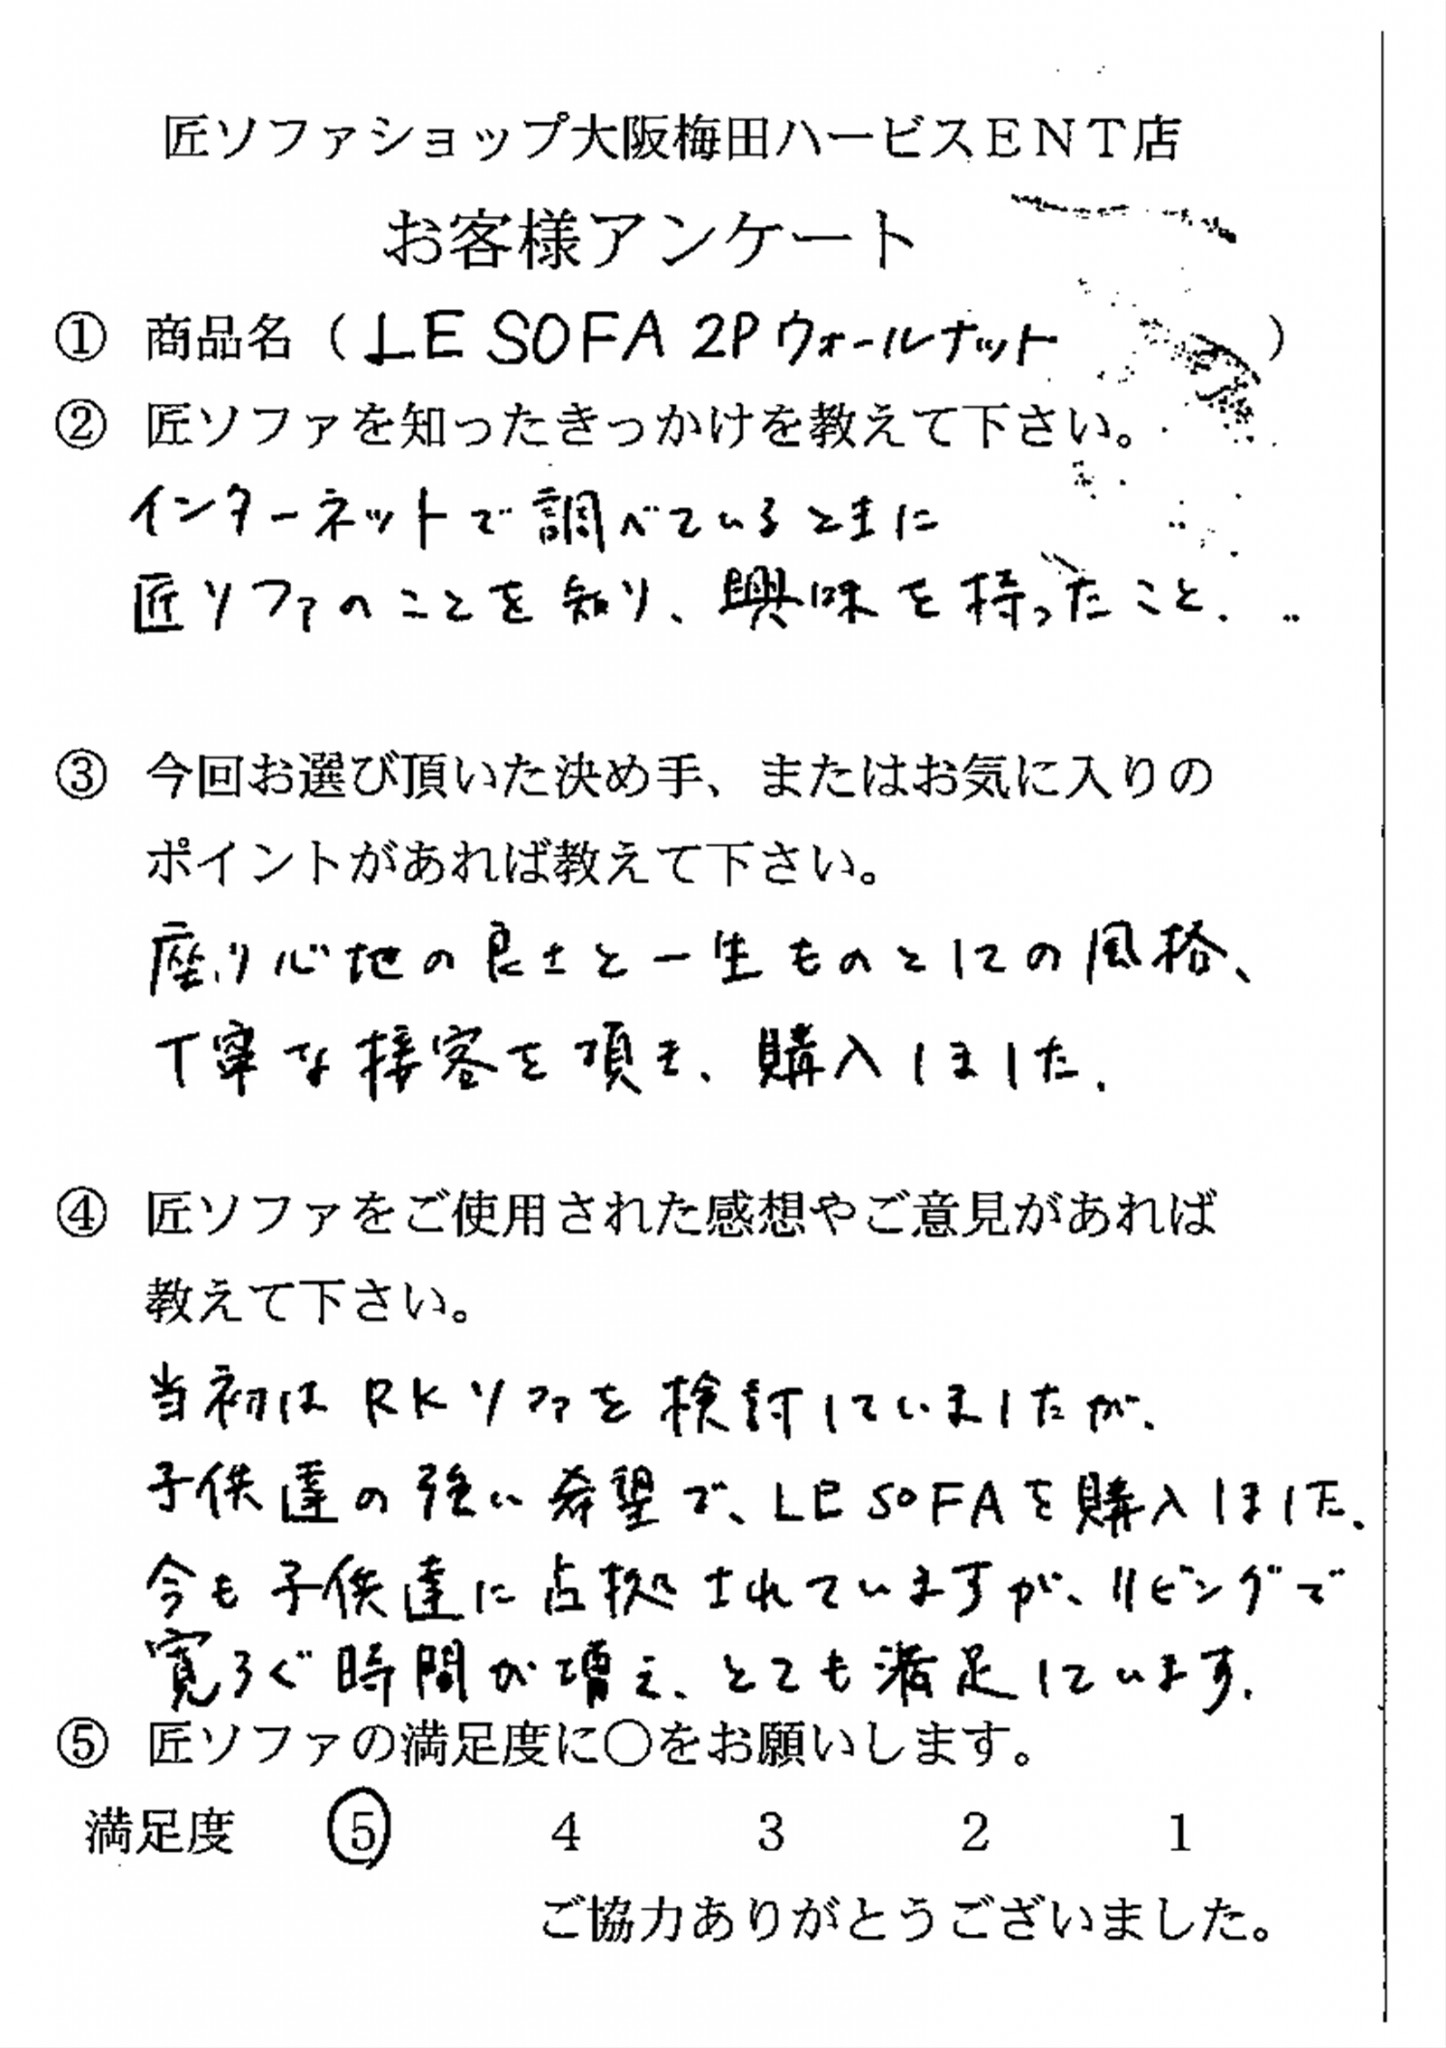 匠ソファショップ大阪梅田ハービスＥＮＴ店
お客様アンケート
① 商品名（LE SOFA 2P ウォールナット）
② 匠ソファを知ったきっかけを教えて下さい。
インターネットで調べているときに
匠ソファのことを知り、興味を持ったこと.
③ 今回お選び頂いた決め手、またはお気に入りの
ポイントがあれば教えて下さい。
座り心地の良さと一生ものとしての風格、
丁寧な接客を頂き、購入しました.
④ 匠ソファをご使用された感想やご意見があれば
教えて下さい。
当初は RKソファを検討していましたが、
子供達の強い希望で、LE SOFAを購入しました.
今も子供達に占拠されていますが、リビングで
寛ろぐ時間が増え、とても満足しています.
⑤ 匠ソファの満足度に○をお願いします。
満足度 5 4 3 2 1
ご協力ありがとうございました。